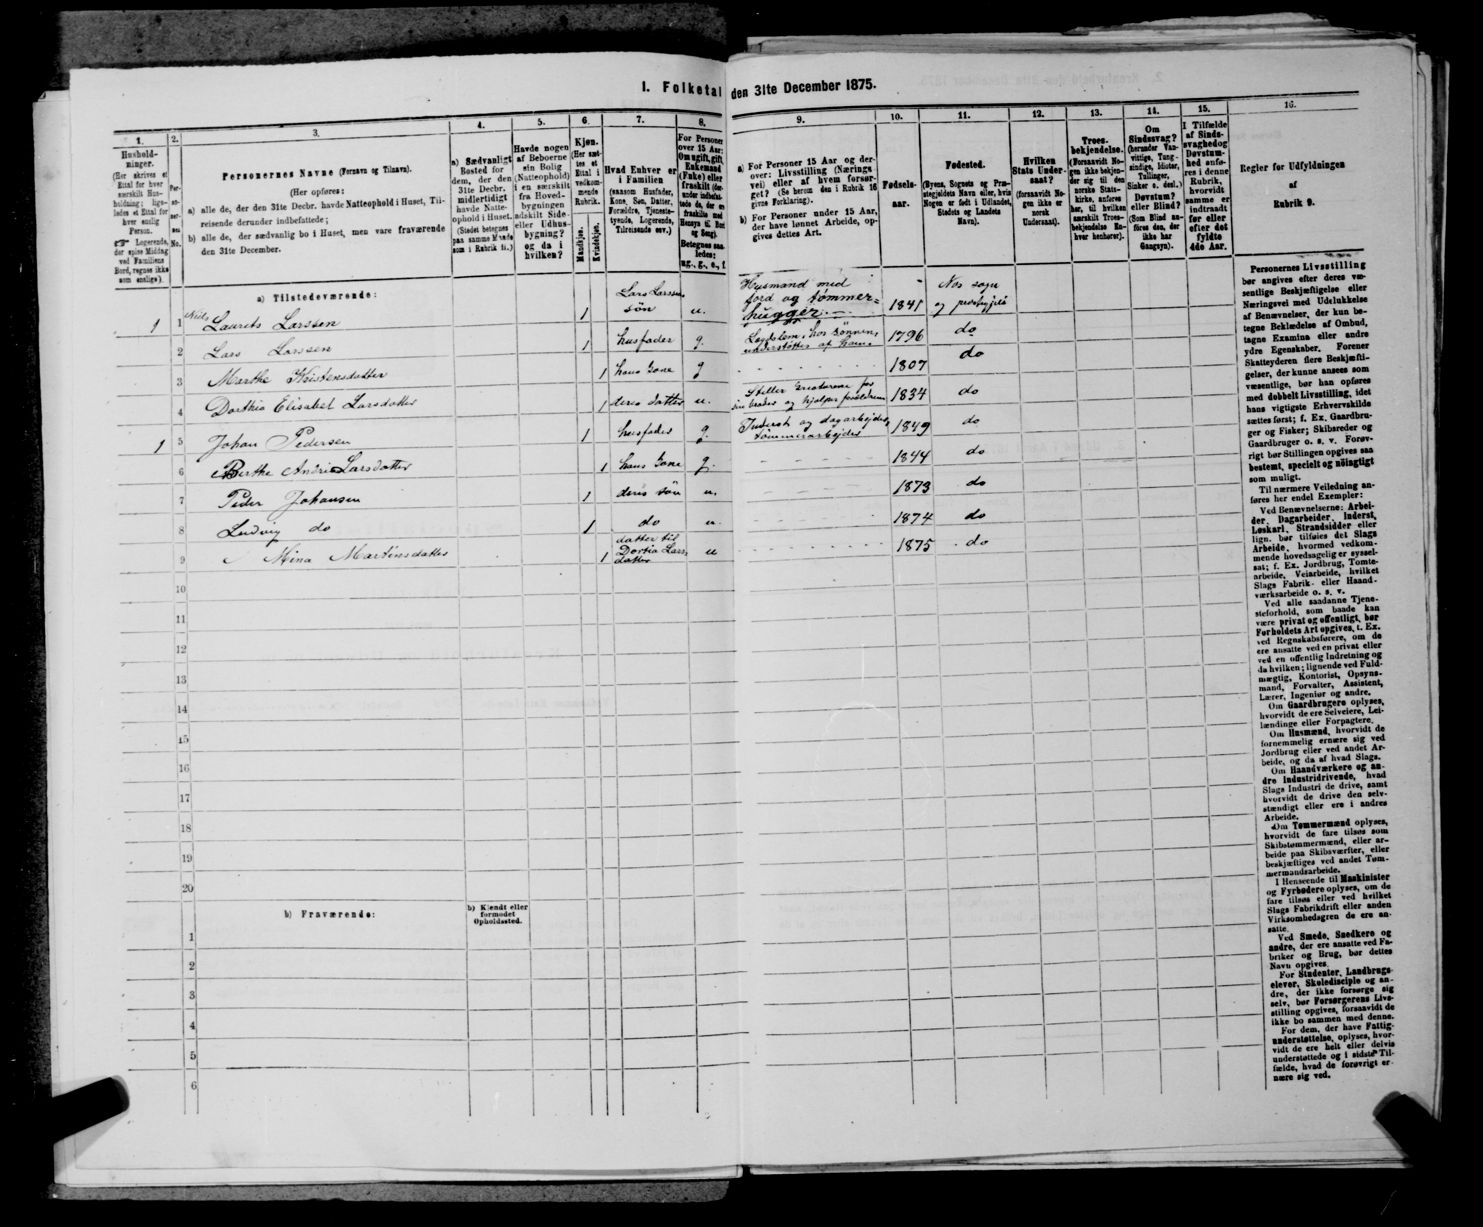 I. Folketal den 31te December 1875.
1.
Hushold-
ninger.
(Her skrives et
Ettal for hver
særskilt Hus-
holdning; lige-
ledes et Ettal for
hver enslig
Person.
☞ Logerende,
der spise Middag
ved Familiens
Bord, regnes ikke
som enslige).
2.
Per-
so-
ner-
nes
No.
3.
Personernes Navne (Fornavn og Tilnavn).
(Her opføres:
a) alle de, der den 31te Decbr. havde Natteophold i Huset, Til-
reisende derunder indbefattede;
b) alle de, der sædvanlig bo i Huset, men vare fraværende
den 31te December.
4.
a) Sædvanligt
Bosted for
dem, der den
31te Decbr.
midlertidigt
havde Natte-
ophold i Huset.
(Stedet betegnes
paa samme Maade
som i Rubrik 11.)
5.
Havde nogen
af Beboerne
sin Bolig
(Natteophold)
i en særskilt
fra Hoved-
bygningen
adskilt Side-
eller Udhus-
bygning?
og da i
hvilken?
6.
Kjøn.
(Her sæt-
tes et
Ettal i
vedkom-
mende
Rubrik.
Mandkjøn.
Kvindekjøn.
7.
Hvad Enhver er
i Familien
(saasom Husfader,
Kone, Søn, Datter,
Forældre, Tjeneste-
tyende, Logerende,
Tilreisende osv.)
8.
For Personer
over 15 Aar:
Om ugift, gift,
Enkemand
(Enke) eller
fraskilt
Betegnes saa-
ledes:
ug., g., e., f.
9.
a) For Personer 15 Aar og der-
over: Livsstilling (Nærings-
vei) eller af hvem forsør-
get? (Se herom den i Rubrik 16
givne Forklaring).
b) For Personer under 15 Aar,
der have lønnet Arbeide, op-
gives dettes Art.
10.
Fødsels-
aar.
11.
Fødested.
(Byens, Sognets og Præ-
stegjeldets Navn eller, hvis
Nogen er født i Udlandet,
Stedets og Landets
Navn).
12.
Hvilken
Stats Under-
saat?
(forsaavidt No-
gen ikke er
norsk
Undersaat).
13.
Troes-
bekjendelse.
(Forsaavidt No-
gen ikke bekjen-
der sig til den
norske Stats-
kirke, anføres
her, til hvilken
særskilt Troes-
bekjendelse En-
hver henhører).
14.
Om
Sindssvag?
(herunder Van-
vittige, Tung-
sindige, Idioter,
Tullinger,
Sinker o. desl.)
Døvstum?
eller Blind?
(Som Blind an-
føres den, der
ikke har
Gangsyn).
15.
I Tilfælde
af Sinds-
svaghed og
Døvstum-
hed anfø-
res i denne
Rubrik,
hvorvidt
samme er
indtraadt
før eller
efter det
fyldte
4de Aar.
16.
Regler for Udfyldningen
af
Rubrik 9.
a) Tilstedeværende:
1 1 Niels Laurits Larssen 1 Lars Larssens søn u. Husmand med jord og tømmer=hugger 1841 Nes sogn og
2 Lars Larssen 1 husfader g. Lægdslem, hos sønnen, understøttes af ham. 1796 do
3 Marthe Kristensdatter 1 hans kone g 1807 do
4 Dorthia Elisabet Larsdatter 1 deres datter u. Steller kreaturene for sin broder og hjelper foreldrene 1834 do
1 5 Johan Pedersen 1 husfader g. Inderst og dagarbejder, tømmerarbejder 1849 do
6 Berthe Andrine Larsdatter 1 hans kone g. 1844 do
7 Peder Johansen 1 deres søn u. 1873 do
8 Ludvig do 1 do u. 1874 do
9 Mina Martinsdatter 1 datter til Dortia Lars datter u 1875 do
10
11
12
13
14
15
16
17
18
19
20
b) Fraværende:
b) Kjendt eller
formodet
Opholdssted.
1
2
3
4
5
6
Personernes Livsstilling
bør angives efter deres væ-
sentlige Beskjæftigelse eller
Næringsvei med Udelukkelse
af Benævnelser, der kun be-
tegne Beklædelse af Ombud,
tagne Examina eller andre
ydre Egenskaber. Forener
Skatteyderen flere Beskjæfti-
gelser, der kunne ansees som
væsentlige, bør han opføres
med dobbelt Livsstilling, idet
hans vigtigste Erhvervskilde
sættes først; f. Ex. Gaardbru-
ger og Fisker; Skibsreder og
Gaardbruger o. s. v. Forøv-
rigt bør Stillingen opgives saa
bestemt, specielt og nøiagtigt
som muligt.
Til nærmere Veiledning an-
føres her endel Exempler:
Ved Benævnelserne: Arbei-
der, Dagarbeider, Inderst,
Løskarl, Strandsidder eller
lign. bør tilføies det Slags
Arbeide, hvormed vedkom-
mende hovedsagelig er syssel-
sat; f. Ex. Jordbrug, Tomte-
arbeide, Veiarbeide, hvilket
Slags Fabrik- eller Haand-
værksarbeide o. s. v.
Ved alle saadanne Tjene-
steforhold, som baade kan
være privat og offentligt, bør
Forholdets Art opgives, t. Ex.
ved Regnskabsførere, om de
ere ansatte ved en privat eller
ved en offentlig Indretning og
da hvilken; lignende ved Fuld-
mægtig, Kontorist, Opsyns-
mand, Forvalter, Assistent,
Lærer, Ingeniør og andre.
Om Gaardbrugere oplyses,
hvorvidt de ere Selveiere, Lei-
lændinge eller Forpagtere.
Om Husmænd, hvorvidt de
fornemmelig ernære sig ved
Jordbrug eller ved andet Ar-
beide, og da af hvad Slags.
Om Haandværkere og an-
dre Industridrivende, hvad
Slags Industri de drive, samt
hvorvidt de drive den selv-
stændigt eller ere i andres
Arbeide.
Om Tømmermænd oplyses,
hvorvidt de fare tilsøs som
Skibstømmermænd, eller ar-
beide paa Skibsværfter, eller
beskjæftiges ved andet Tøm-
mermandsarbeide.
I Henseende til Maskinister
og Fyrbødere oplyses, om de
fare tilsøs eller ved hvilket
Slags Fabrikdrift eller anden
Virksomhedsgren de ere an-
satte.
Ved Smede, Snedkere og
andre, der ere ansatte ved Fa-
briker og Brug, bør dettes
Navn opgives.
For Studenter, Landbrugs-
elever, Skoledisciple og an-
dre, der ikke forsørge sig
selv, bør Forsørgerens Livs-
stilling opgives, forsaavidt de
ikke bo sammen med denne.
For dem, der have Fattig-
understøttelse, oplyses, hvor-
vidt de ere helt eller delvis
understøttede og i sidste Til-
fælde, hvad de forøvrigt er-
nære sig ved.